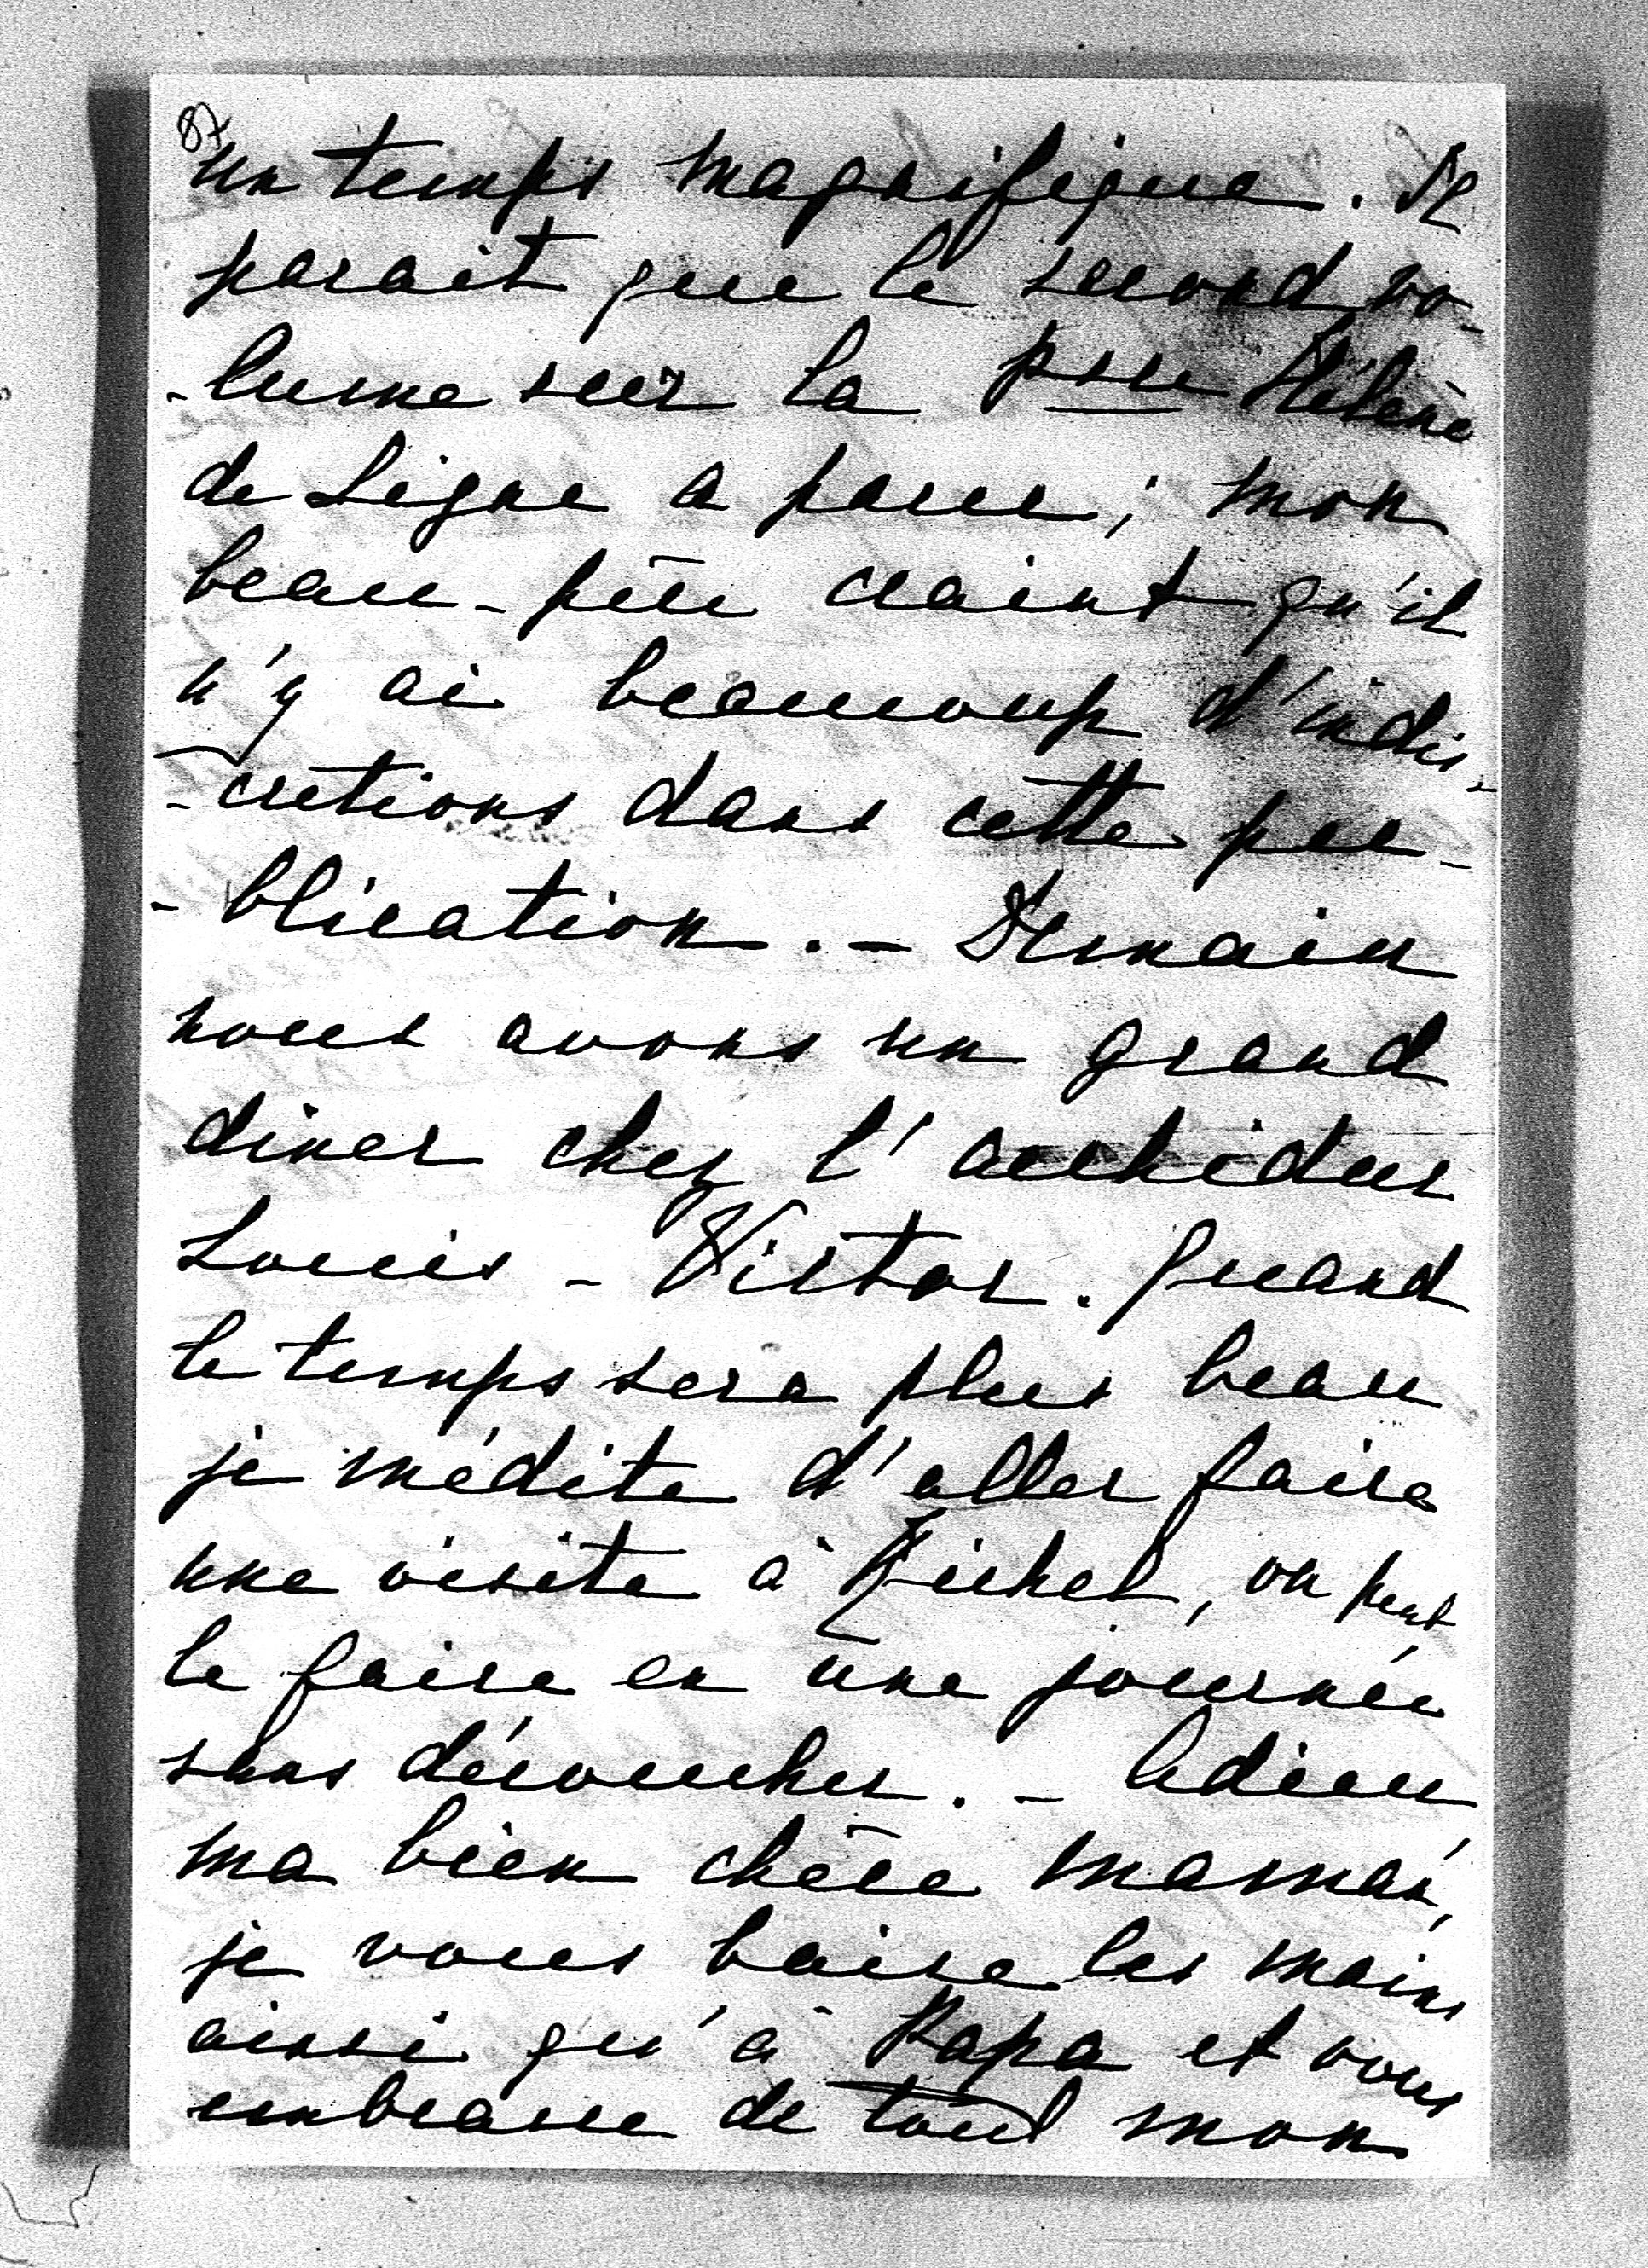 87
un temps magnifique. Il
parait que le second vo-
-lume sur la Psse Hélène
de Ligne a paru ; mon
beau-père craint qu'il
n'y ai beaucoup d'indis-
-cretions dans cette pu-
-blication. - Demain
nous avons un grand
diner chez l'archiduc
Louis-Victor. Quand
le temps sera plus beau
je médite d'aller faire
une visite à Michel, on peut
le faire en une journée
sans découcher. - Adieu
ma bien chère maman,
je vous baise les mains
ainsi qu'à Papa et vous
embrasse de tout mon